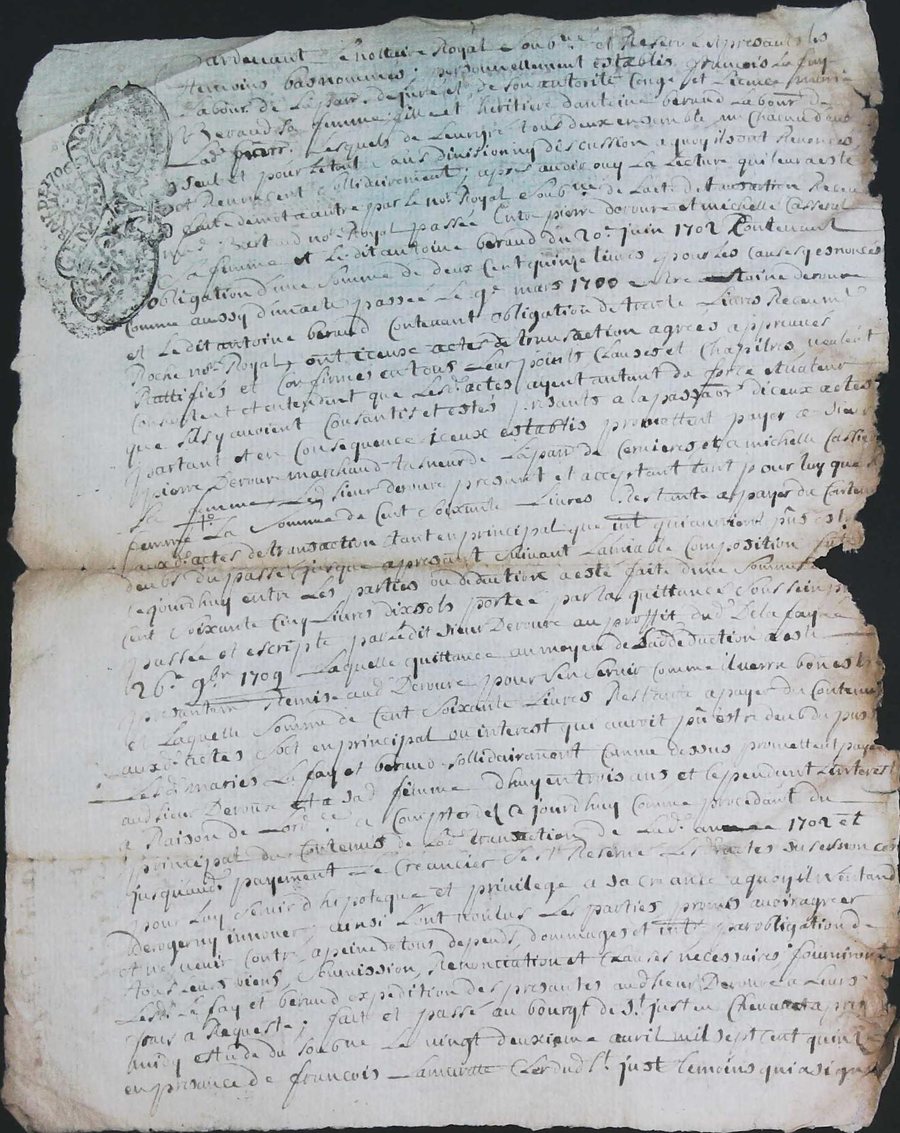 Pardevant Le nottaire Royal Soubne et Reservé et presants les
temoins bas nommés, personnellement establis francois La fay
Labour de Lad parr. de jure et de son autorité Congé et Licence marie
beraud sa femme fille et heritiere dantoine beraud Labour de
Lad parr. Lesquels de Leur gré tous deux ensemble un Chacun deux
seul et pour Le tout sans division ny discussion a quoy ils ont Renoncés
et Renoncent sollidairement, apres avoir ouy La Lecture qui leur a esté
faite de mot a autre par Le nore Royal Soubne de Lacte de transaction Receu
nore Royal passée Entre pierre deroure et michelle Casseral
sa femme et Le dit antoine beraud du 20e juin 1702 Contenant
obligation dune somme de deux Cent quinze livres pour Les Causes y enoncées
Comme aussy dun acte passée Le 9e mars 1700 Entre deroure
et Le dit antoine beraud Contenant obligation de trante Livres Receu
Roche nore Royal, ont iceux actes de transaction agréés approuvés
Rattifiés et Confirmés en tous Leurs points Clauses et Chapitres, veulent
Consentent et entendent que Lesd. actes ayent autant de force et valeur
que sils y avoient Consantis et estés presants a la passaon diceux actes
partant et en Consequence iceux establis promettent payer a sieur
pierre Deroure marchand de La parr de Cernieres et a michelle
sa femme Led sieur deroure presant et acceptant tant pour luy que sa
femme La somme de Cent soixante Livres Restante a payer du Contenu
auxd. actes de transaction tant en principal que int.
deubs du passé jusque a presant suivant Lamiable Composition faite
cejourdhuy entre Les parties ou deduction a esté faite dune somme
Cent soixante Cinq Livres dix sols portée par la quittance sous sein privé
passée et escripte par Ledit sieur Deroure au proffit dud. De la fay Le
26e 9bre 1709 Laquelle quittance au moyen de Lad deduction a esté
presantemt Remise aud Deroure pour sen servir Comme il verra bon estre
et Laquelle somme de Cent soixante Livres Restante a payer du Contenu
auxd. actes soit en principal ou interest qui auroit pu estre deub du passé
Lesd. mariés La fay et beraud sollidairement Comme dessus promettent payer
aud sieur Deroure et a sad femme dhuy en trois ans et Cependant Linterest
a Raison de Lord. a Compter de Cejourdhuy Comme procedant du
principal du Contenus de Lad. transaction de Lad. année 1702 et
jusquaud. payement Le Creancier sest Reservé Les actes
pour Luy servir dhipoteque et privilege a sa Creance a quoy il nentand
Deroger ny innover, ainsi Lont voulus Les parties promis avoir agreer
et ne venir Contre a peine de tous depends dommages et int. par obligation de
tous Leurs biens soumission, Renonciation et Clauses necessaires fourniront
Lesd. La fay et beraud expedition des presantes aud sieur Deroure a Leurs
frais a Requeste; fait et passé au bourgt de St. just en Chevalet apres
midy estude du soubne Le vingt deuxieme avril mil sept cent quinze
en presance de francois Lamurette Clerc dud St. just temoins qui a signé